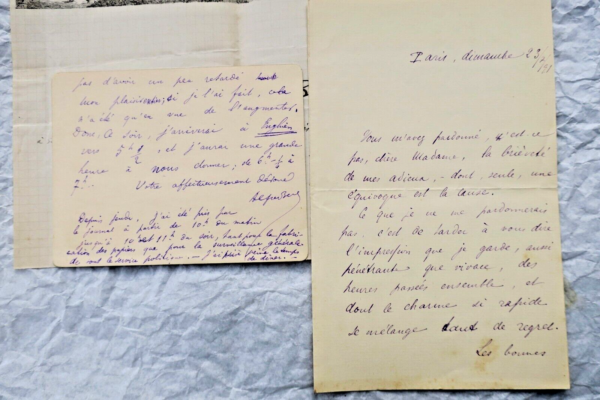 pas d'avoir un peu retardé
mon plaisir; si je l'ai fait, cela
n'a été qu'en vue de l'augmenter.
Donc, le soir, j'arriverai à Enghien
vers 5h ½, et j'aurai une grande
heure à nous donner, de 5h ½ à
7h. Votre affectueusement dévoué
Depuis, j'ai été pris par
le journal à partir de 10h du matin
jusqu'à 10h et 11h du soir, tant pour la
des papiers que pour la surveillance générale
politique. — J'ai le temps
de dîner. —
Paris, dimanche 23
Vous m'avez pardonné, n'est-ce
pas, chère Madame, la brièveté
de mes adieux, — dont, seule, une
équivoque est la cause.
Ce que je ne me pardonnerais
pas, c'est de tarder à vous dire
l'impression que je garde, aussi
pénétrante que vivace, des
heures passées ensemble, et
dont le charme si rapide
se mélange tant de regret.
Les bonnes